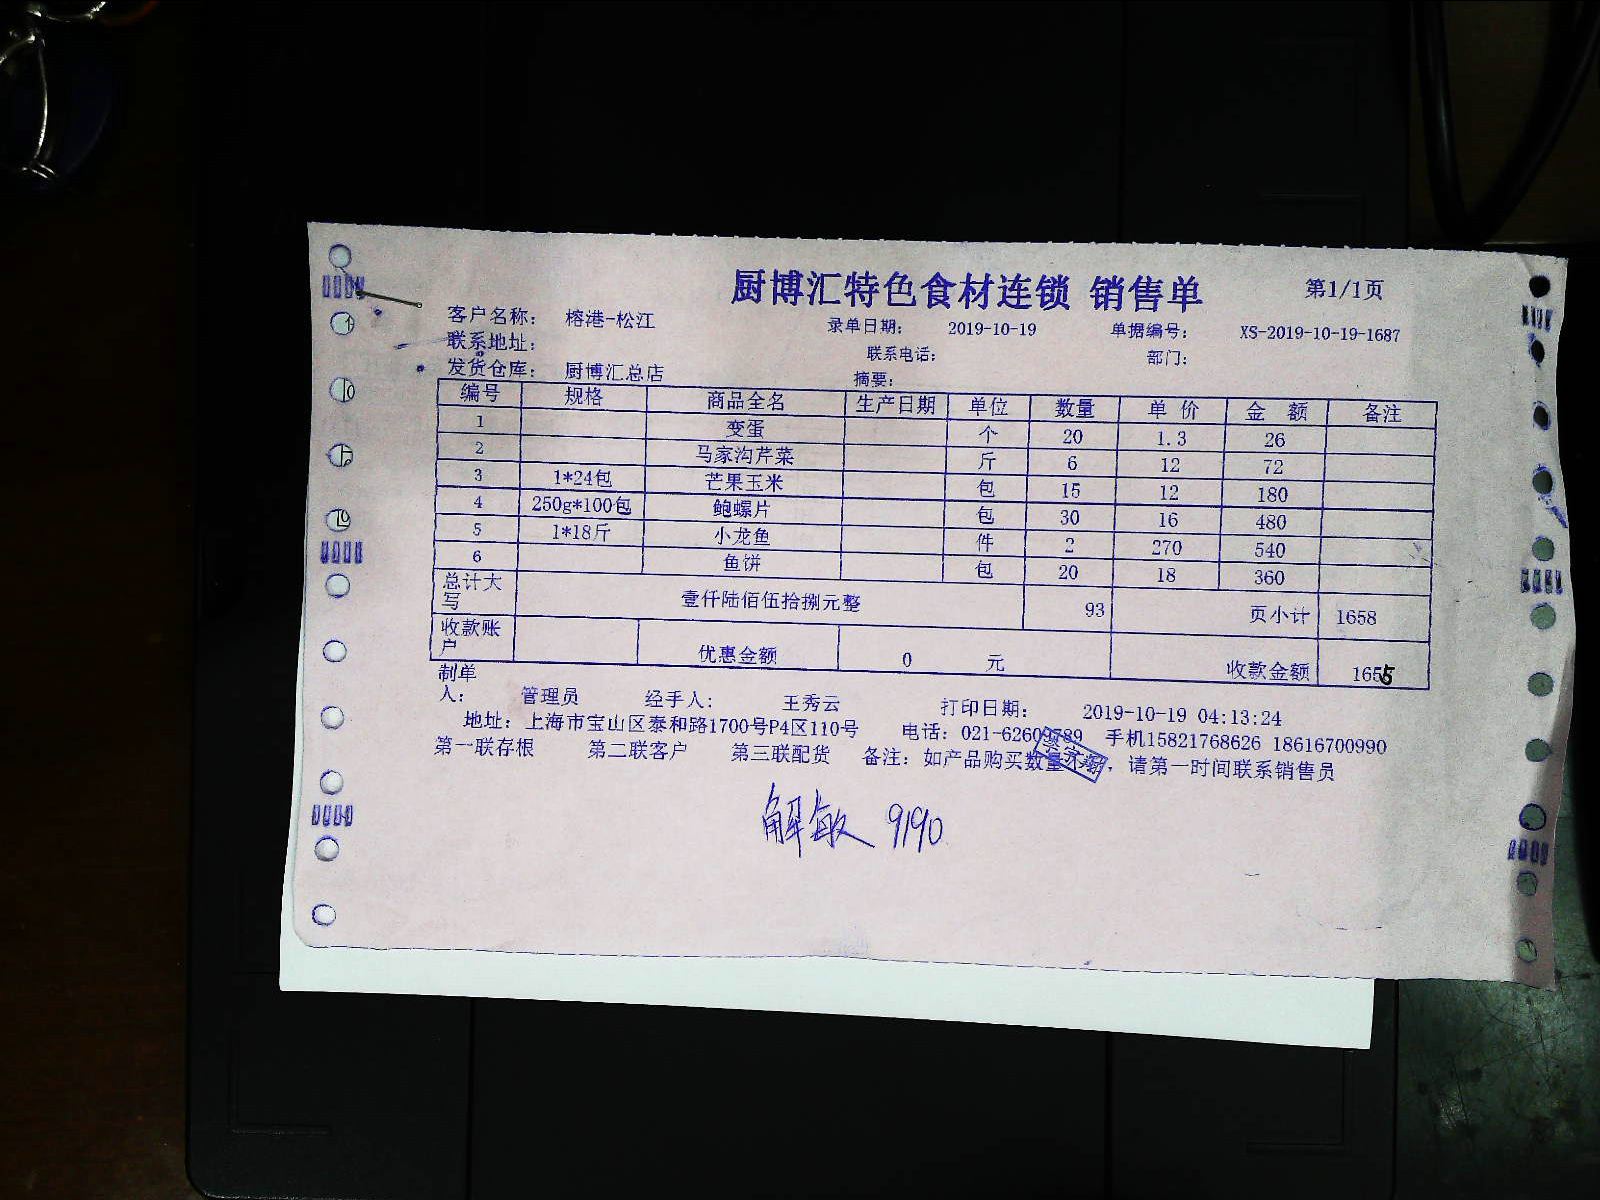 厨博汇特色食材连锁 销售单 第1/1页
客户名称： 榕港-松江 录单日期： 2019-10-19 单据编号： XS-2019-10-19-1687
联系地址： 联系电话： 部门：
发货仓库： 厨博汇总店 摘要：
编号 规格 商品全名 生产日期 单位 数量 单 价 金 额 备注
1 变蛋 个 20 1.3 26
2 马家沟芹菜 斤 6 12 72
3 1*24包 芒果玉米 包 15 12 180
4 250g*100包 鲍螺片 包 30 16 480
5 1*18斤 小龙鱼 件 2 270 540
6 鱼饼 包 20 18 360
总计大写 壹仟陆佰伍拾捌元整 93 页小计 1658
收款账户 优惠金额 0 元 收款金额 1655
制单人： 管理员 经手人： 王秀云 打印日期： 2019-10-19 04:13:24
地址：上海市宝山区泰和路1700号P4区110号 电话：021-62609789 手机15821768626 18616700990
第一联存根 第二联客户 第三联配货 备注：如产品购买数量 ，请第一时间联系销售员
解敏 9190